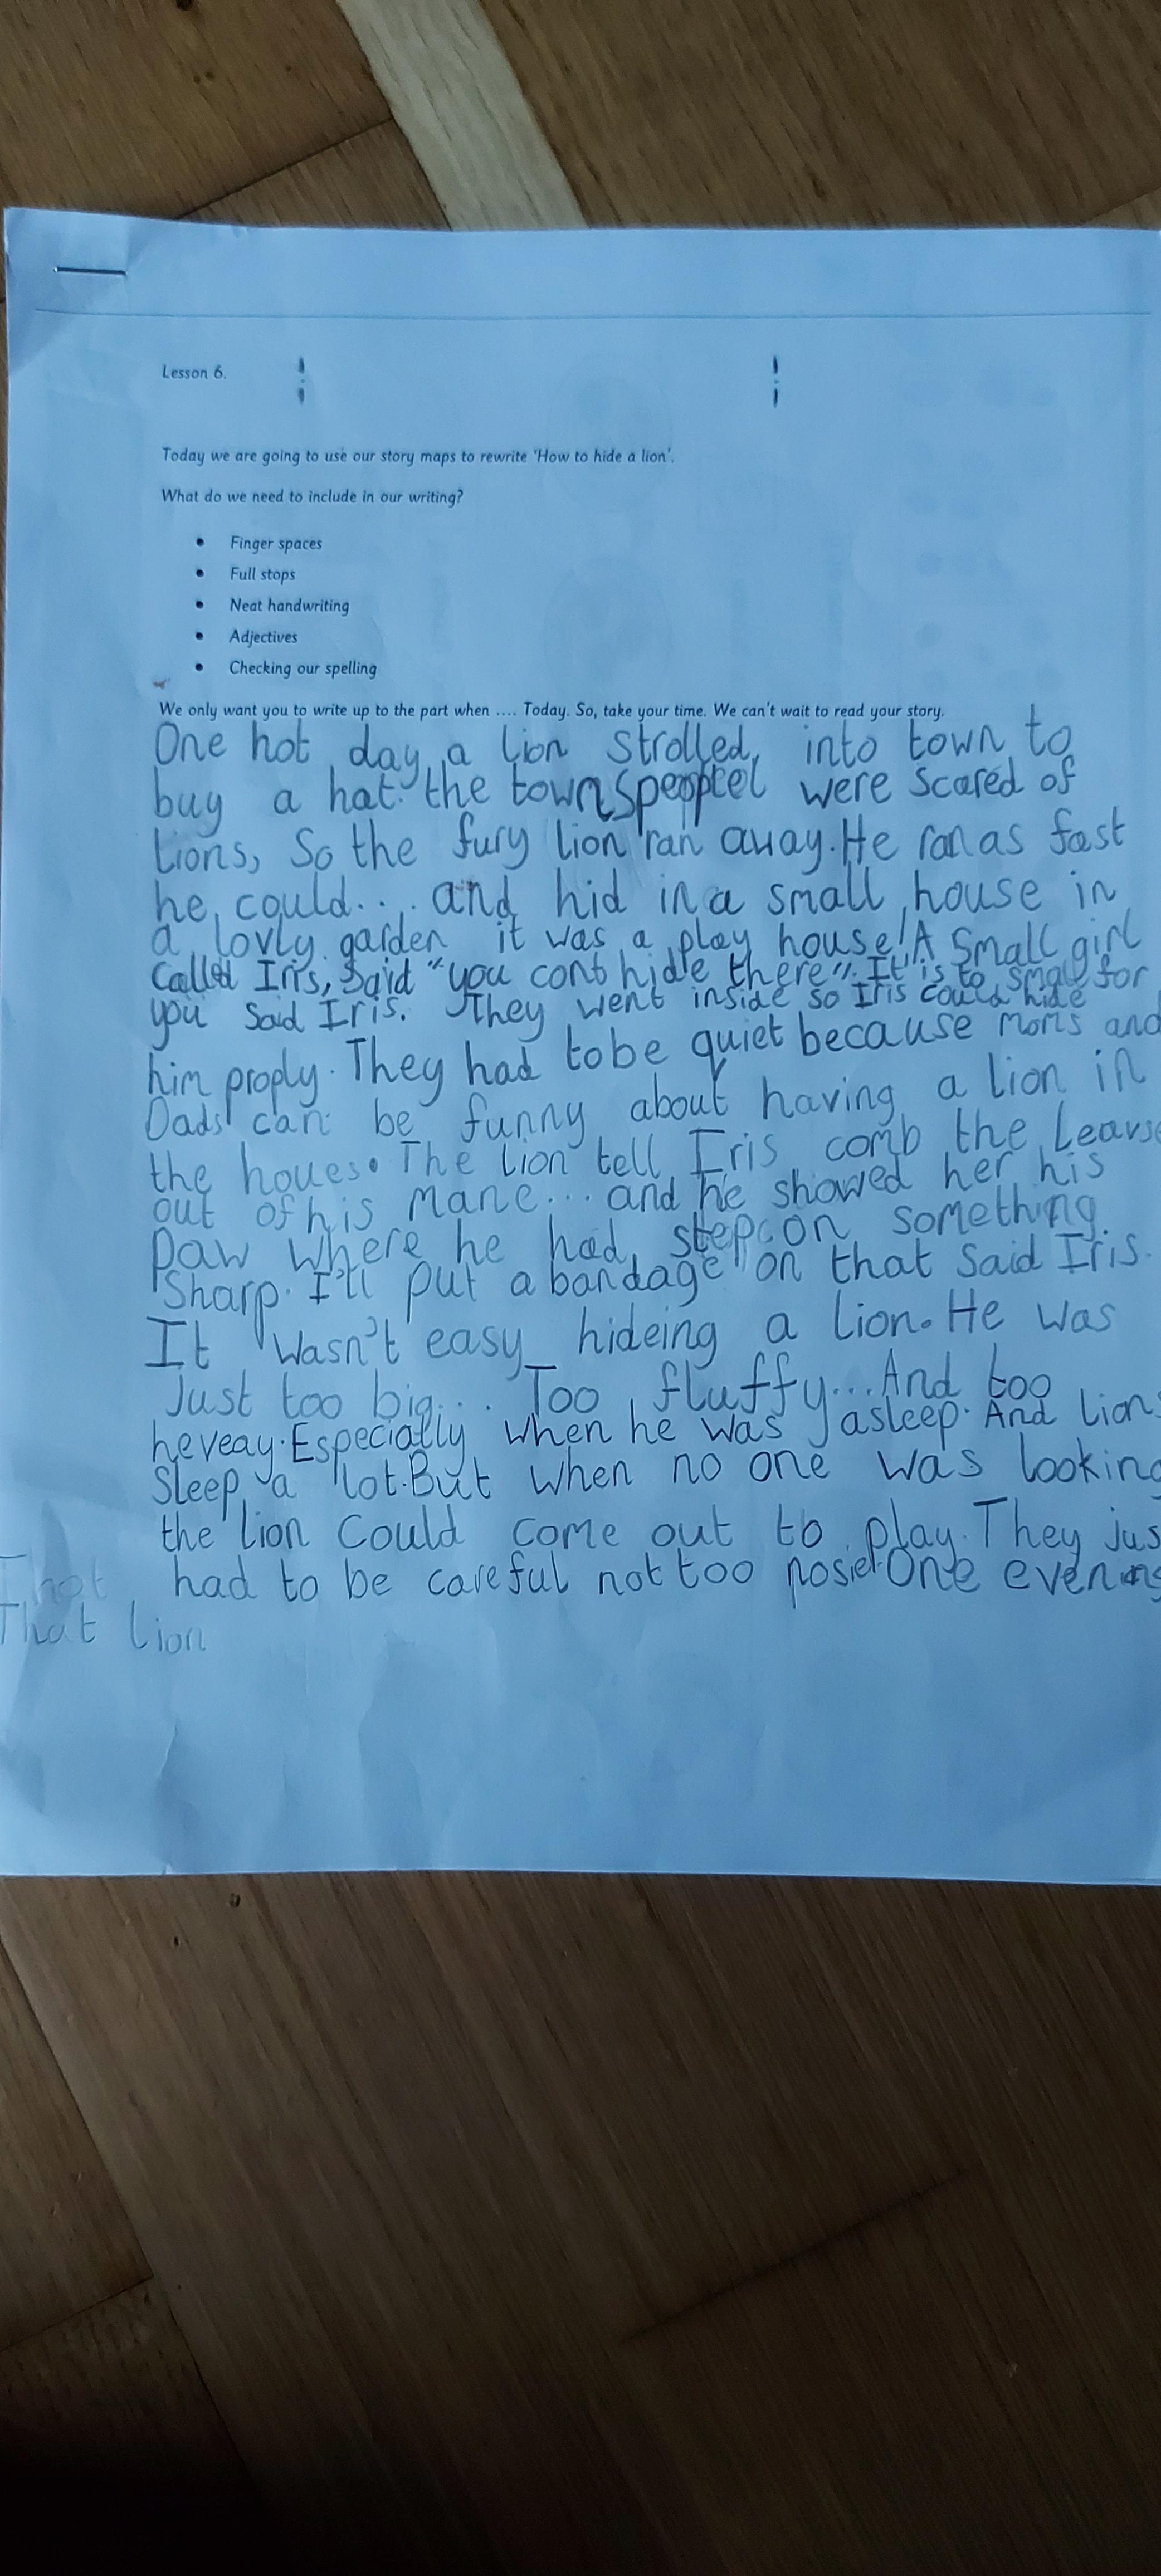 Lesson 6.
Today we are going to use our story maps to rewrite 'How to hide a lion'.
What do we need to include in our writing?
• Finger spaces
• Full stops
• Neat handwriting
• Adjectives
• Checking our spelling
We only want you to write up to the part when .... Today. So, take your time. We can't wait to read your story.
One hot day a lion strolled into town to
buy a hat. the townspeoplel were scared of
Lions, So the fury lion ran away. He ran as fast
he could.... and hid in a small house in
a lovly garden it was a play house! A Small girl
Called Iris, Said "you cont hide there". It is to small for
you Said Iris. They went inside so Iris could hide
him proply. They had to be quiet because Moms and
Dads can be funny about having a lion in
the houes. The lion tell Iris comb the Leavse
out of his Mane... and he showed her his
paw where he had step on something
Sharp. I'll put a bandage on that Said Iris.
It wasn't easy hideing a lion. He was
Just too big.... Too fluffy... And too
heveay. Especially when he was asleep. And lions
Sleep a lot. But when no one was looking
the lion Could come out to play. They jus
had to be careful not too nosie. One evening
That
That lion